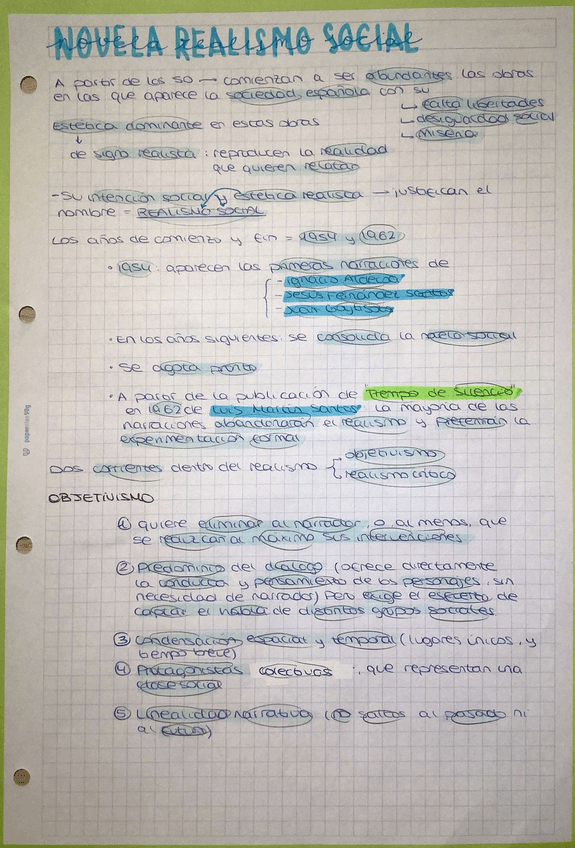 NOVELA REALISMO SOCIAL
A partir de los 50 → comienzan a ser abundantes las obras
en las que aparece la sociedad española con su
↳ falta libertades
↳ desigualdad social
↳ Miseria
Estética dominante en estas obras
↓
de signo realista: reproducen la realidad
que quieren relatar
- Su intención social y estética realista → justifican el
nombre = REALISMO SOCIAL
Los años de comienzo y fin = 1954 y 1962
• 1954: aparecen las primeras narraciones de
- Ignacio Aldecoa
- Jesús Fernández Santos
- Juan Goytisolo
• En los años siguientes: se consolida la novela social
• Se agota pronto
• A partir de la publicación de "Tiempo de Silencio"
en 1962 de Luis Martín Santos: la mayoría de las
narraciones abandonarán el realismo y preferirán la
experimentación formal
Dos corrientes dentro del realismo { objetivismo
realismo crítico
OBJETIVISMO
① quiere eliminar al narrador, o al menos, que
se reduzcan al máximo sus intervenciones
② Predominio del diálogo (ofrece directamente
la conducta y pensamiento de los personajes, sin
necesidad de narrador) Pero exige el esfuerzo de
captar el habla de distintos grupos sociales
③ Condensación espacial y temporal (lugares únicos, y
tiempo breve)
④ Protagonistas colectivos: que representan una
clase social
⑤ Linealidad narrativa (no saltos al pasado ni
al futuro)